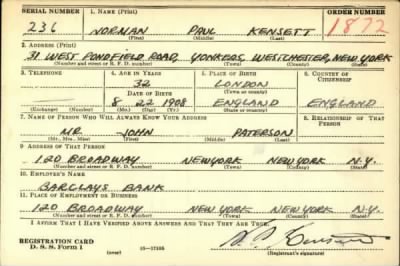 SERIAL NUMBER 1. NAME (Print) ORDER NUMBER
236 NORMAN PAUL KENSETT 1872
(First) (Middle) (Last)
2. ADDRESS (Print)
31 WEST PONDFIELD ROAD, YONKERS, WESTCHESTER, NEW YORK
(Number and street or R. F. D. number) (Town) (County) (State)
3. TELEPHONE 4. AGE IN YEARS 5. PLACE OF BIRTH 6. COUNTRY OF CITIZENSHIP
32 LONDON
DATE OF BIRTH (Town or county)
8 22 1908 ENGLAND ENGLAND
(Exchange) (Number) (Mo.) (Day) (Yr.) (State or country)
7. NAME OF PERSON WHO WILL ALWAYS KNOW YOUR ADDRESS 8. RELATIONSHIP OF THAT PERSON
MR. JOHN PATERSON
(Mr., Mrs., Miss) (First) (Middle) (Last)
9. ADDRESS OF THAT PERSON
120 BROADWAY NEWYORK NEWYORK N.Y.
(Number and street or R. F. D. number) (Town) (County) (State)
10. EMPLOYER'S NAME
BARCLAYS BANK
11. PLACE OF EMPLOYMENT OR BUSINESS
120 BROADWAY NEW YORK NEW YORK N.Y.
(Number and street or R. F. D. number) (Town) (County) (State)
I AFFIRM THAT I HAVE VERIFIED ABOVE ANSWERS AND THAT THEY ARE TRUE.
REGISTRATION CARD
D. S. S. Form 1 (over) 16—17105 (Registrant's signature)